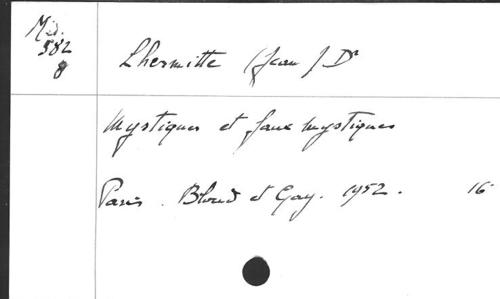 Méd.
582
8
Lhermitte (Jean) Dr
Mystiques et faux mystiques
Paris. Bloud et Gay. 1952. 16